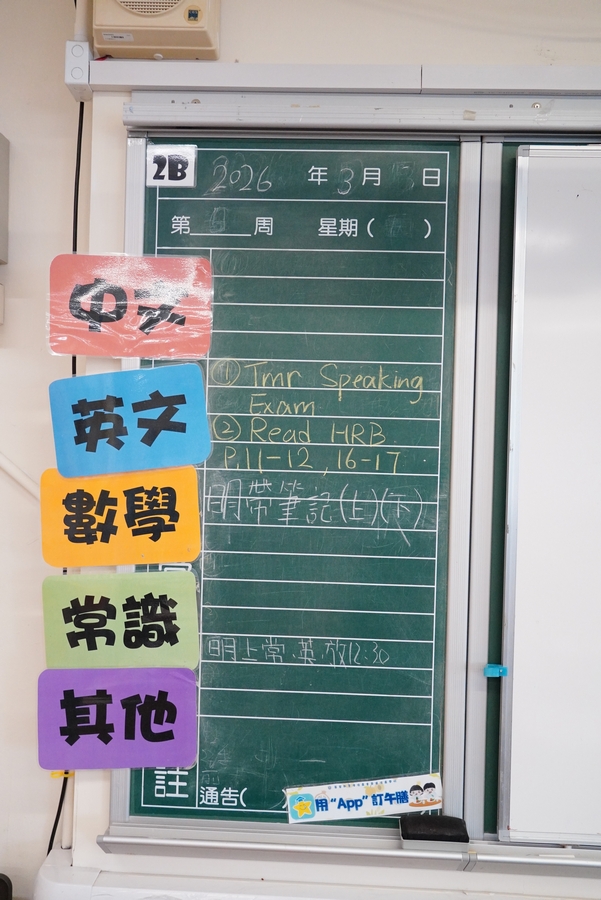 2B
2026 年 3 月 日
第 周 星期( )
中文
① Tmr Speaking
Exam
英文
② Read HRB
P.11-12, 16-17
數學
明帶筆記(上)(下)
常識
明上常.英.放12:30
其他
註
通告(
用“App”訂午膳